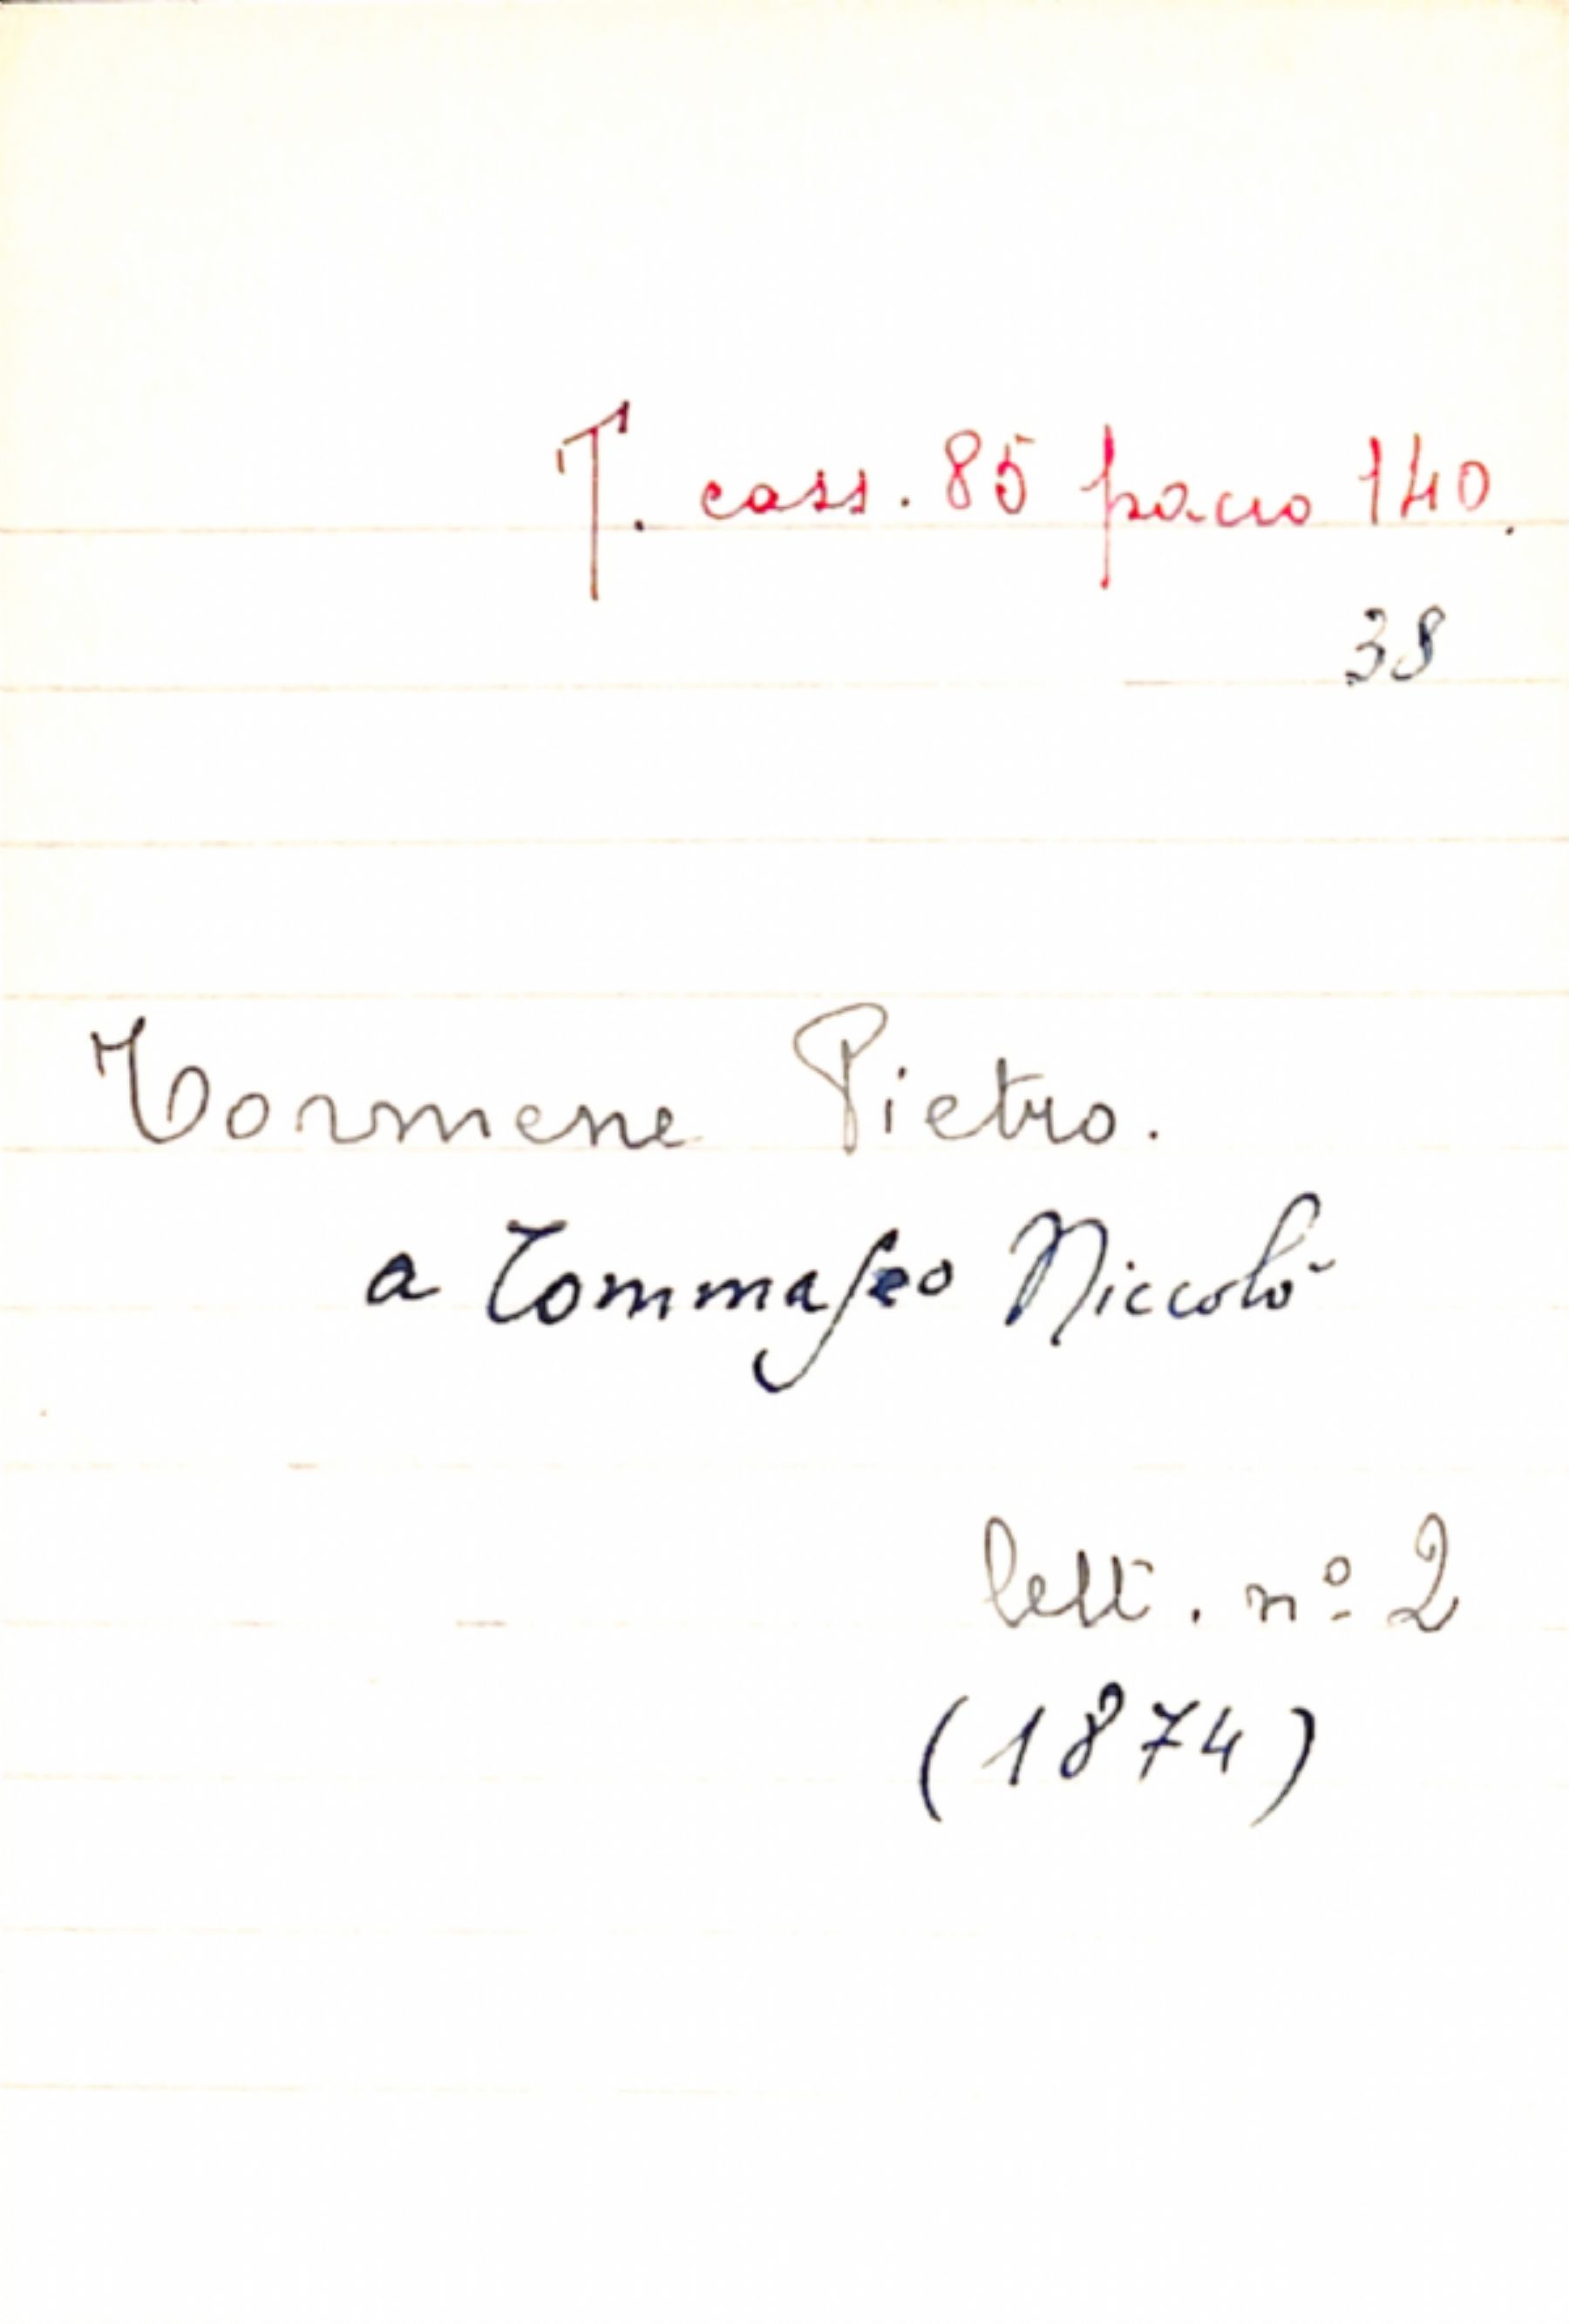 T. cass. 85 pacco 140.
38
Tormene Pietro.
a Tommaseo Niccolò
lett. nº 2
(1874)